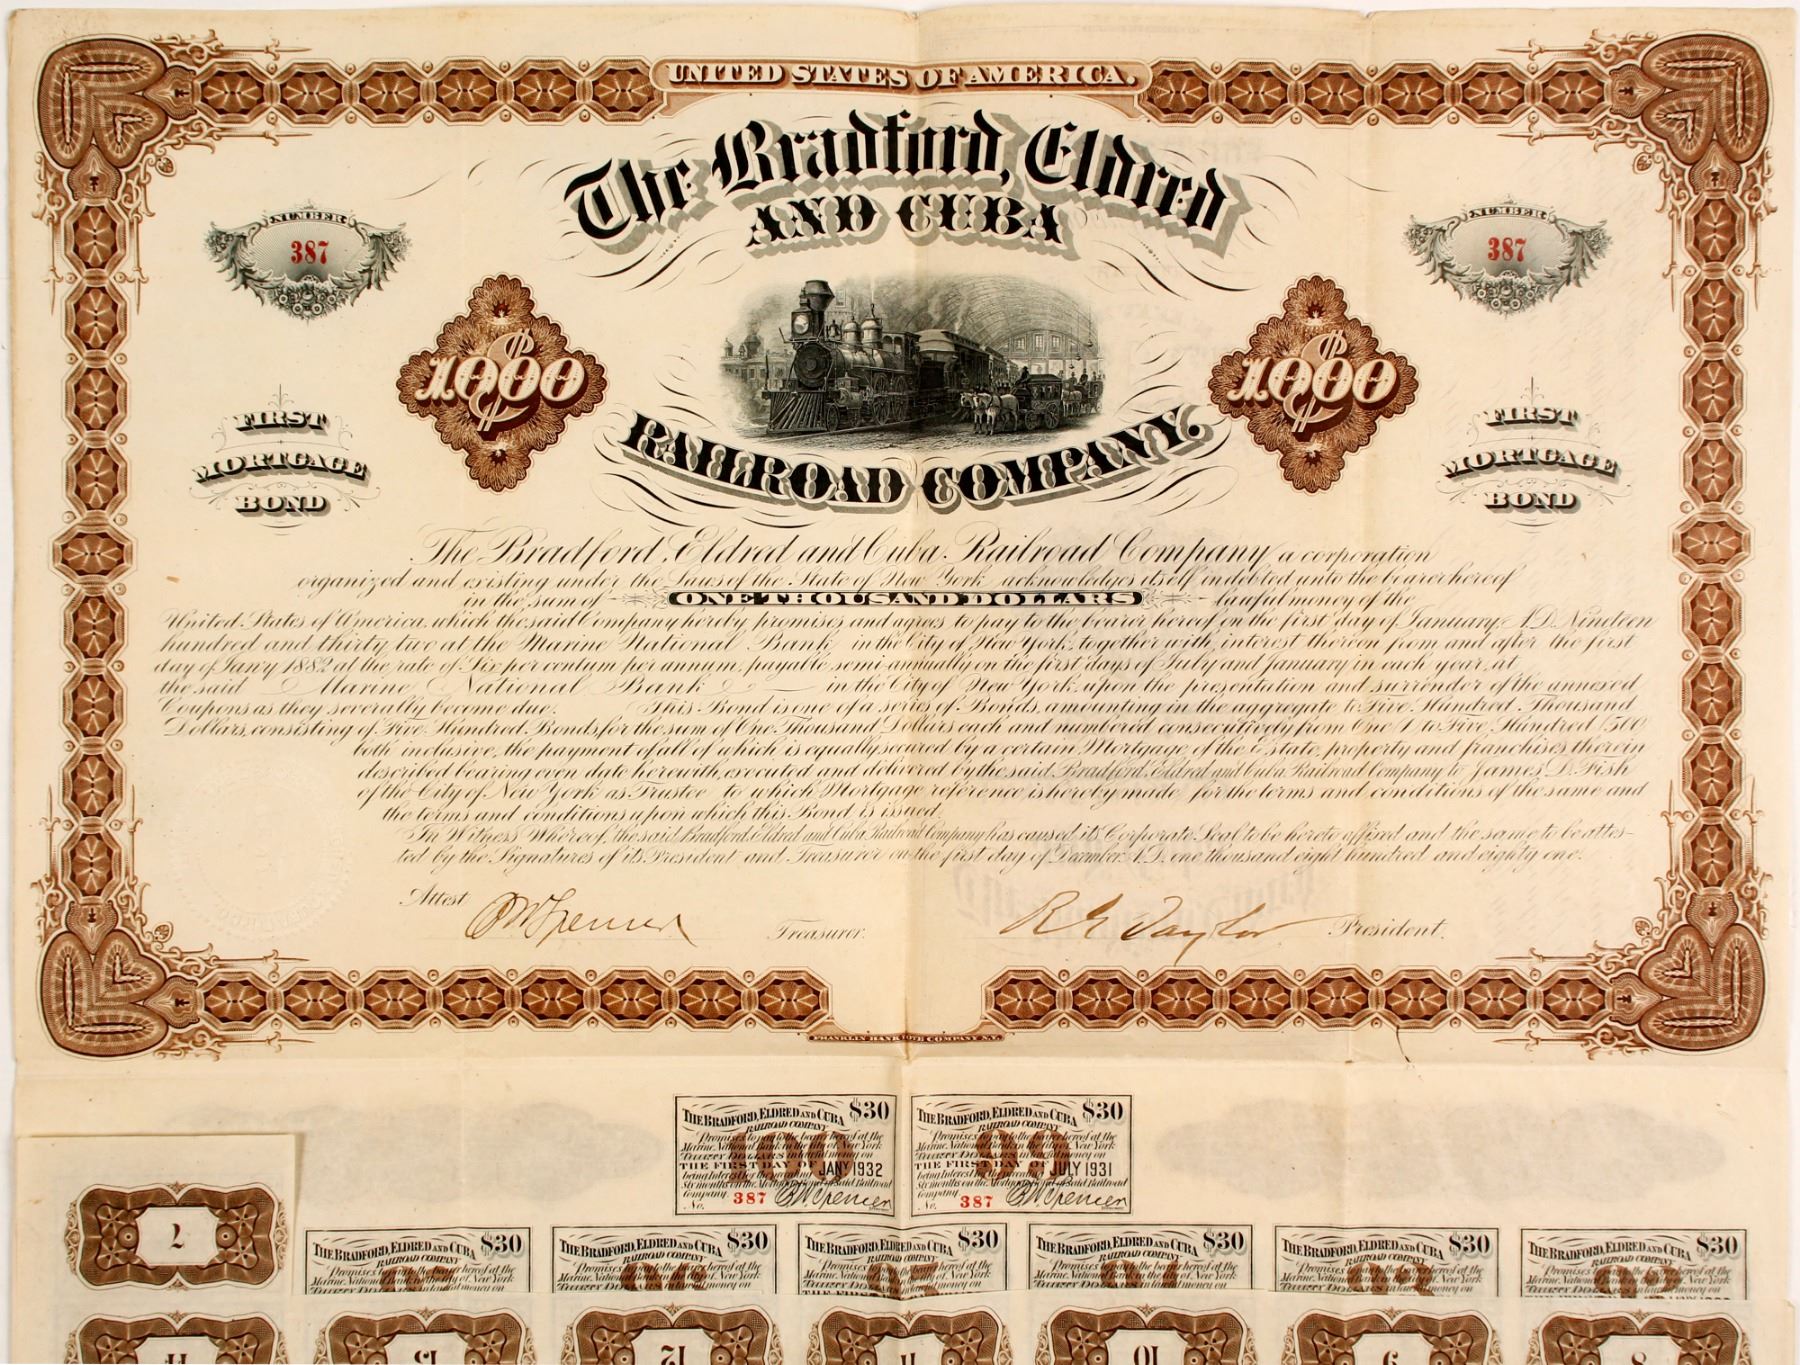 UNITED STATES OF AMERICA.
The Bradford, Eldred
AND CUBA
RAILROAD COMPANY.
NUMBER
387
NUMBER
387
$1000
$1000
FIRST
MORTGAGE
BOND
FIRST
MORTGAGE
BOND
The Bradford, Eldred and Cuba Railroad Company a corporation
organized and existing under the Laws of the State of New York acknowledges itself indebted unto the bearer hereof
in the sum of ONE THOUSAND DOLLARS lawful money of the
United States of America, which the said Company hereby promises and agrees to pay to the bearer hereof on the first day of January, A.D. Nineteen
hundred and thirty two at the Marine National Bank, in the City of New York, together with interest thereon from and after the first
day of Jan'y 1882 at the rate of Six per centum per annum, payable semi-annually on the first days of July and January in each year, at
the said Marine National Bank in the City of New York upon the presentation and surrender of the annexed
Coupons as they severally become due. This Bond is one of a series of Bonds, amounting in the aggregate to Five Hundred Thousand
Dollars, consisting of Five Hundred Bonds, for the sum of One Thousand Dollars each and numbered consecutively from One 1 to Five Hundred (500)
both inclusive, the payment of all of which is equally secured by a certain Mortgage, of the estate, property and franchises therein
described bearing even date herewith, executed and delivered by the said Bradford, Eldred and Cuba Railroad Company to James D. Fish
of the City of New York as Trustee to which Mortgage reference is hereby made for the terms and conditions of the same and
the terms and conditions upon which this Bond is issued.
In Witness Whereof, the said Bradford, Eldred and Cuba Railroad Company has caused its Corporate Seal to be hereto affixed and the same to be attes-
ted by the Signatures of its President and Treasurer on the first day of December A.D. one thousand eight hundred and eighty one.
Attest Spencer Treasurer. Taylor President.
FRANKLIN BANK NOTE COMPANY N.Y.
THE BRADFORD, ELDRED AND CUBA $30
RAILROAD COMPANY
Promises to pay to the bearer hereof at the
Marine National Bank in the City of New York
THIRTY DOLLARS in lawful money on
THE FIRST DAY OF JANY 1932
being Interest for the preceding
Six months on the Mortgage Bond of said Railroad
Company.
No. 387 Spencer
THE BRADFORD, ELDRED AND CUBA $30
RAILROAD COMPANY
Promises to pay to the bearer hereof at the
Marine National Bank in the City of New York
THIRTY DOLLARS in lawful money on
THE FIRST DAY OF JULY 1931
being Interest for the preceding
Six months on the Mortgage Bond of said Railroad
Company.
No. 387 Spencer
7
THE BRADFORD, ELDRED AND CUBA $30
RAILROAD COMPANY
Promises to pay to the bearer hereof at the
Marine National Bank in the City of New York
THIRTY DOLLARS in lawful money on
THE BRADFORD, ELDRED AND CUBA $30
RAILROAD COMPANY
Promises to pay to the bearer hereof at the
Marine National Bank in the City of New York
THIRTY DOLLARS in lawful money on
THE BRADFORD, ELDRED AND CUBA $30
RAILROAD COMPANY
Promises to pay to the bearer hereof at the
Marine National Bank in the City of New York
THIRTY DOLLARS in lawful money on
THE BRADFORD, ELDRED AND CUBA $30
RAILROAD COMPANY
Promises to pay to the bearer hereof at the
Marine National Bank in the City of New York
THIRTY DOLLARS in lawful money on
THE BRADFORD, ELDRED AND CUBA $30
RAILROAD COMPANY
Promises to pay to the bearer hereof at the
Marine National Bank in the City of New York
THIRTY DOLLARS in lawful money on
THE BRADFORD, ELDRED AND CUBA $30
RAILROAD COMPANY
Promises to pay to the bearer hereof at the
Marine National Bank in the City of New York
THIRTY DOLLARS in lawful money on
12 11 10 9 8